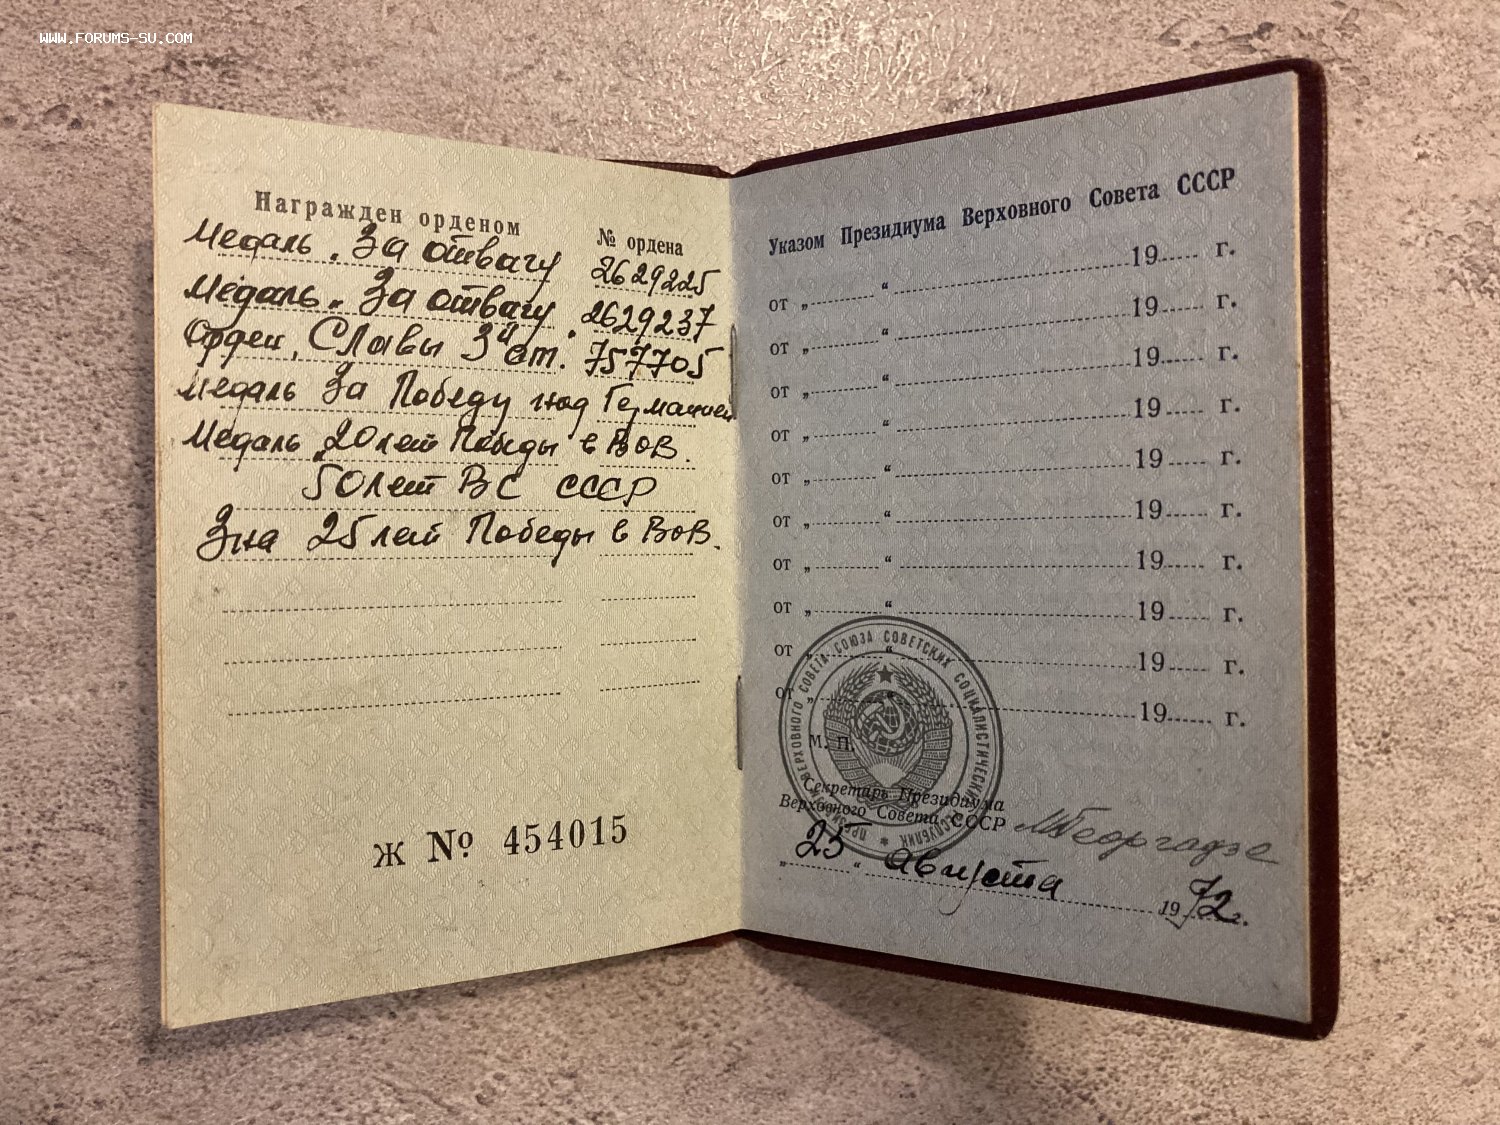 WWW.FORUMS-SU.COM
Награжден орденом
№ ордена
Медаль „За отвагу 2629225
Медаль „За отвагу 2629237
Орден „Славы 3й ст. 757705
Медаль За Победу над Германией
Медаль „20 лет Победы в ВОВ.
50 лет ВС СССР
Зна 25 лет Победы в ВОВ.
Ж № 454015
Указом Президиума Верховного Совета СССР
от „ “ 19 г.
от „ “ 19 г.
от „ “ 19 г.
от „ “ 19 г.
от „ “ 19 г.
от „ “ 19 г.
от „ “ 19 г.
от „ “ 19 г.
от „ “ 19 г.
от „ “ 19 г.
ПРЕЗИДИУМ ВЕРХОВНОГО СОВЕТА СОЮЗА СОВЕТСКИХ СОЦИАЛИСТИЧЕСКИХ РЕСПУБЛИК
М. П.
Секретарь Президиума
Верховного Совета СССР МГеоргадзе
„25“ Августа 1972 г.